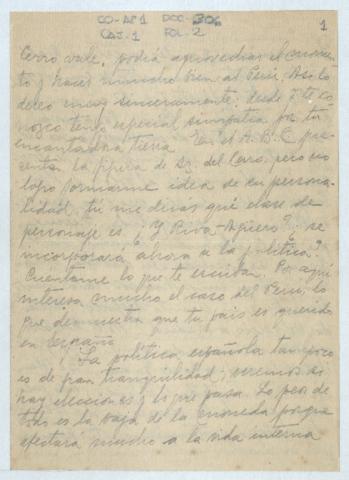 CO-AP1 DOC-306
CAJ.1 FOL.2
1
Cerro vale, podrá aprovechar el momento
y hacer mucho bien al Perú. Así lo
deseo muy sinceramente; desde q te conozco
tengo especial simpatía por tu
encantadora tierra En el A.B.C
la figura de Sz. del Cerro, pero no
logro formarme idea de su personalidad,
tú me dirás qué clase de
personaje es ¿Y Riva-Agüero? ¿se
incorporará ahora a la política?
Cuéntame lo que te escriban. Por aquí
interesa mucho el caso del Perú, lo
que demuestra que tu país es querido
en España
La política española tampoco
es de gran tranquilidad; veremos si
hay elecciones y lo que pasa. Lo peor de
todo es la baja de la moneda porque
afectará mucho a la vida interna